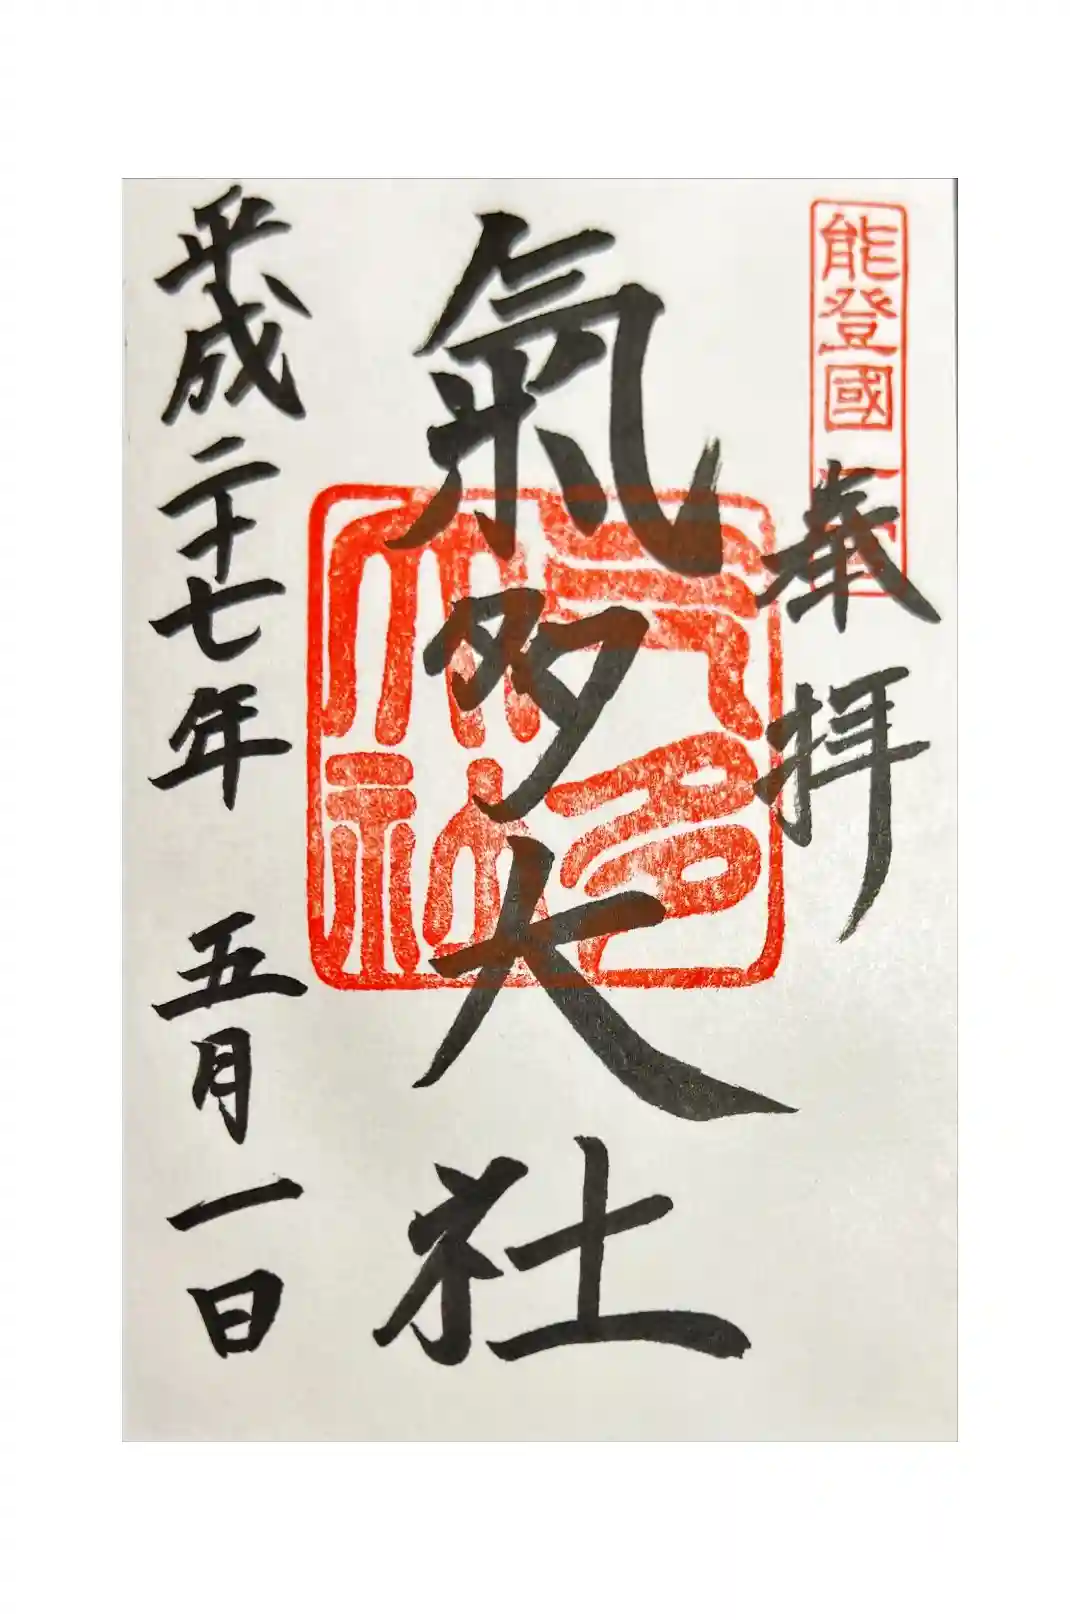 能登國一宮
奉拝
氣多大社
氣多大社
平成二十七年 五月一日